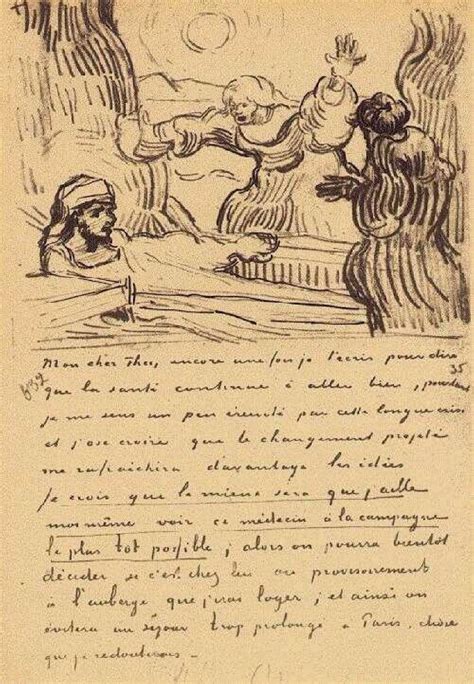 35
Mon cher Theo, encore une fois je t'écris pour dire
632
que la santé continue à aller bien, pourtant
je me sens un peu éreinté par cette longue crise
et j'ose croire que le changement projeté
me rafraîchira davantage les idées
Je crois que le mieux sera que j'aille
moi même voir ce médecin à la campagne
le plus tôt possible; alors on pourra bientôt
décider si c'est chez lui ou provisoirement
à l'auberge que j'irai loger; et ainsi on
évitera un séjour trop prolongé à Paris, chose
que je redouterais –